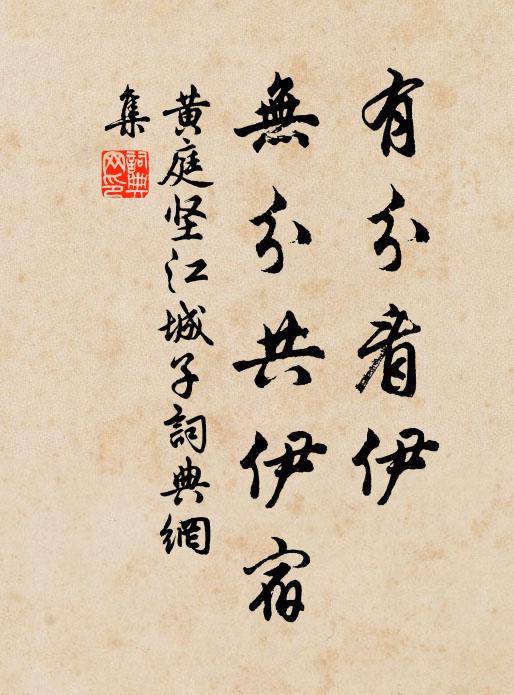 有分看伊
無分共伊宿
黄庭坚江城子詞典網
集
詞典
网印